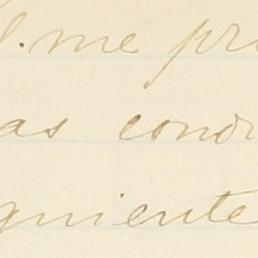 me pr
as cond
guiente